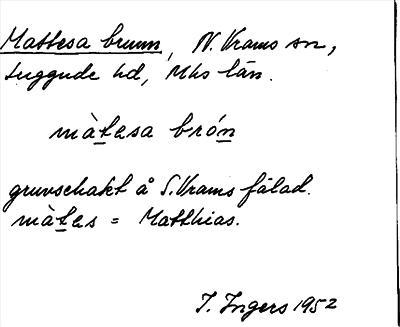 Mattesa brunn, N. Vrams sn,
Luggude hd, Mhs län.
màṯesa bróṉ
gruvschakt å S. Vrams fälad.
màṯes = Matthias.
I. Ingers 1952